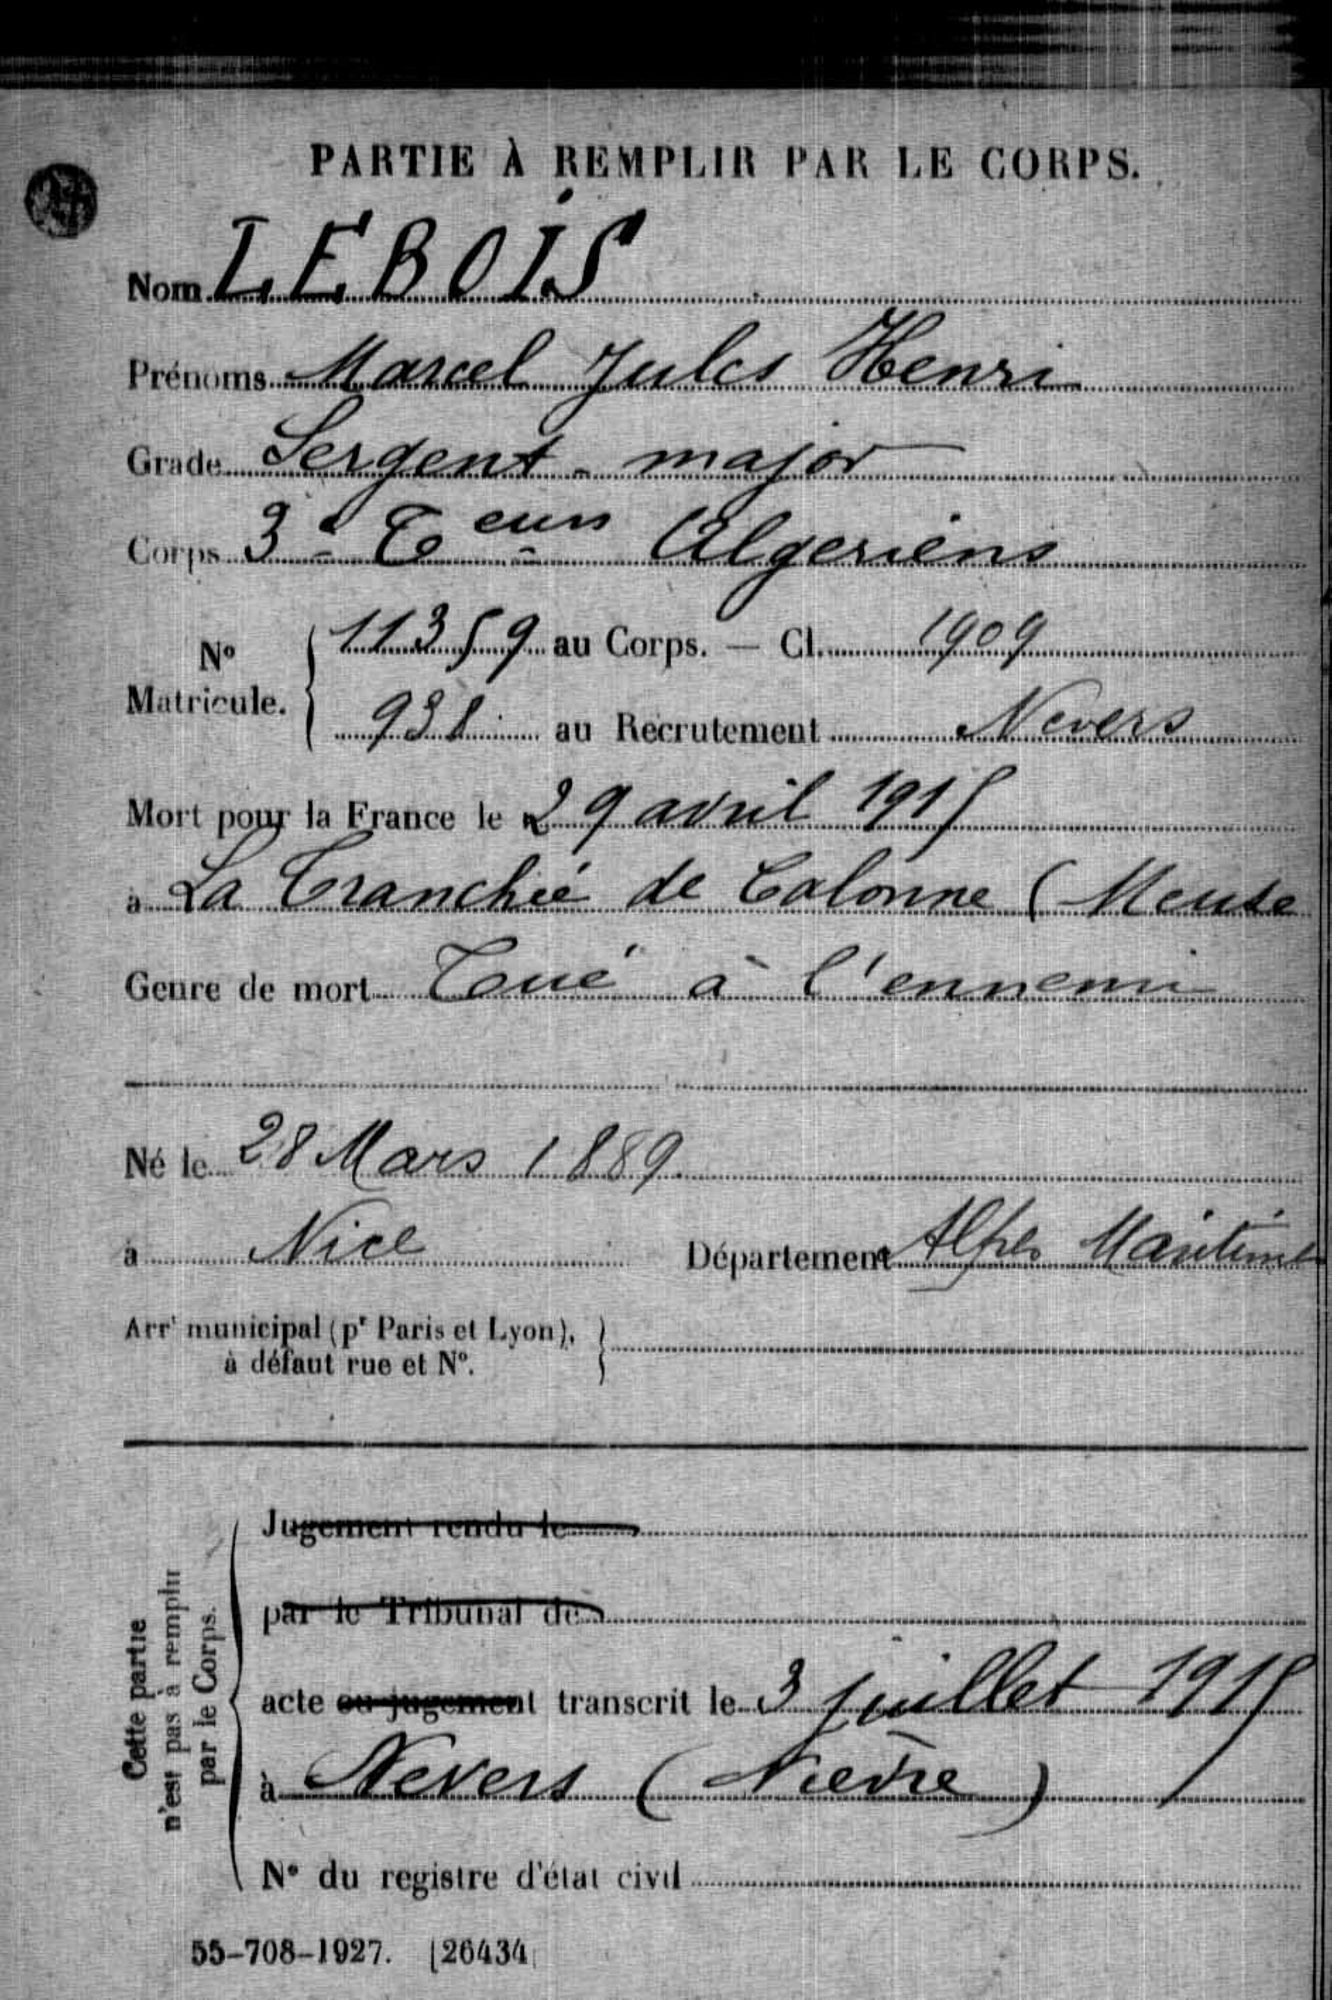 PARTIE À REMPLIR PAR LE CORPS.
Nom LEBOIS
Prénoms Marcel Jules Henri
Grade Sergent-major
Corps 3e Teurs Algeriens
No Matricule. 11359 au Corps. — Cl. 1909
938 au Recrutement Nevers
Mort pour la France le 29 avril 1915
à La Tranchée de Calonne (Meuse
Genre de mort Tué à l'ennemi
Né le 28 Mars 1889.
à Nice Département Alpes Maritimes
Arrt municipal (pr Paris et Lyon),
à défaut rue et No.
Cette partie
n'est pas à remplir
par le Corps.
Jugement rendu le
par le Tribunal de
acte ou jugement transcrit le 3 juillet 1915
à Nevers (Nièvre)
No du registre d'état civil
55-708-1927. [26434